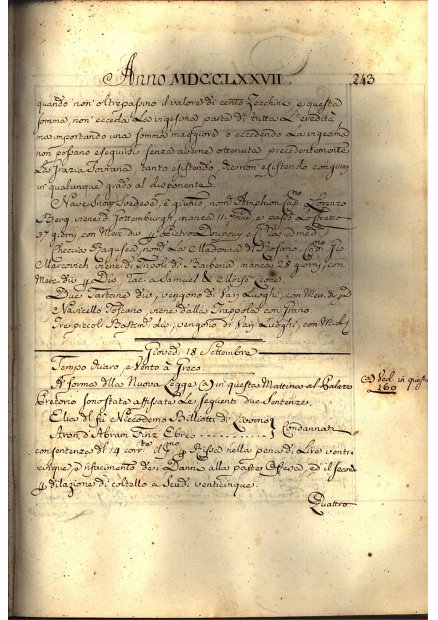 Anno MDCCLXXVII. 243
quando non' oltrepassino il valore di cento Zecchini e questa
somma non' ecceda La vigesima parte di tutta L'eredità
ma importando una somma maggiore o eccedendo La vigesima
non possano eseguirsi senza averne ottenuta precedentemente
La Grazia Sovrana tanto esistendo che non' esistendo congiunti
in qualunque grado al disponente.
Nave Svedese è giunto nom. Amphion Cap.no Lorenzo
Berg viene di Gottenburgh, manca 11. e passò Lo stretto
37 giorni, con Merc. div.
Checcia Ragusea nom. La Madonna di Rosario, Cap. Gio
Marcovich, viene di Tripoli di Barberia manca 28 giorni, con
Merc. div. p. Div. Rac. a Samuel & Moisè Leone
Due Tartane div. vengono di Vari Luoghi, con Merc. div.
Navicello Toscano viene dalla Trappola con Grano
Tre piccoli Bastim. div. vengono di Vari Luoghi, con M. d.
Giovedì 18 Settembre
Tempo chiaro, e Vento à Greco.
A forma della Nuova Legge (a) in questa Mattina al Palazzo (a) Ved. in questo
Pretorio sono state affissate Le seguenti due Sentenze. 160
Elia del fù Niccodemo Bailliotti di Livorno } Condannati
Aron d'Abram Finz Ebreo
con sentenza del 14 corr.te il P.mo p. Rissa nella pena di Lire venti
cinque, e rifacimento dei Danni alla parte Offesa, ed il secondo
p. dilazione di coltello a Scudi venticinque.
Quattro